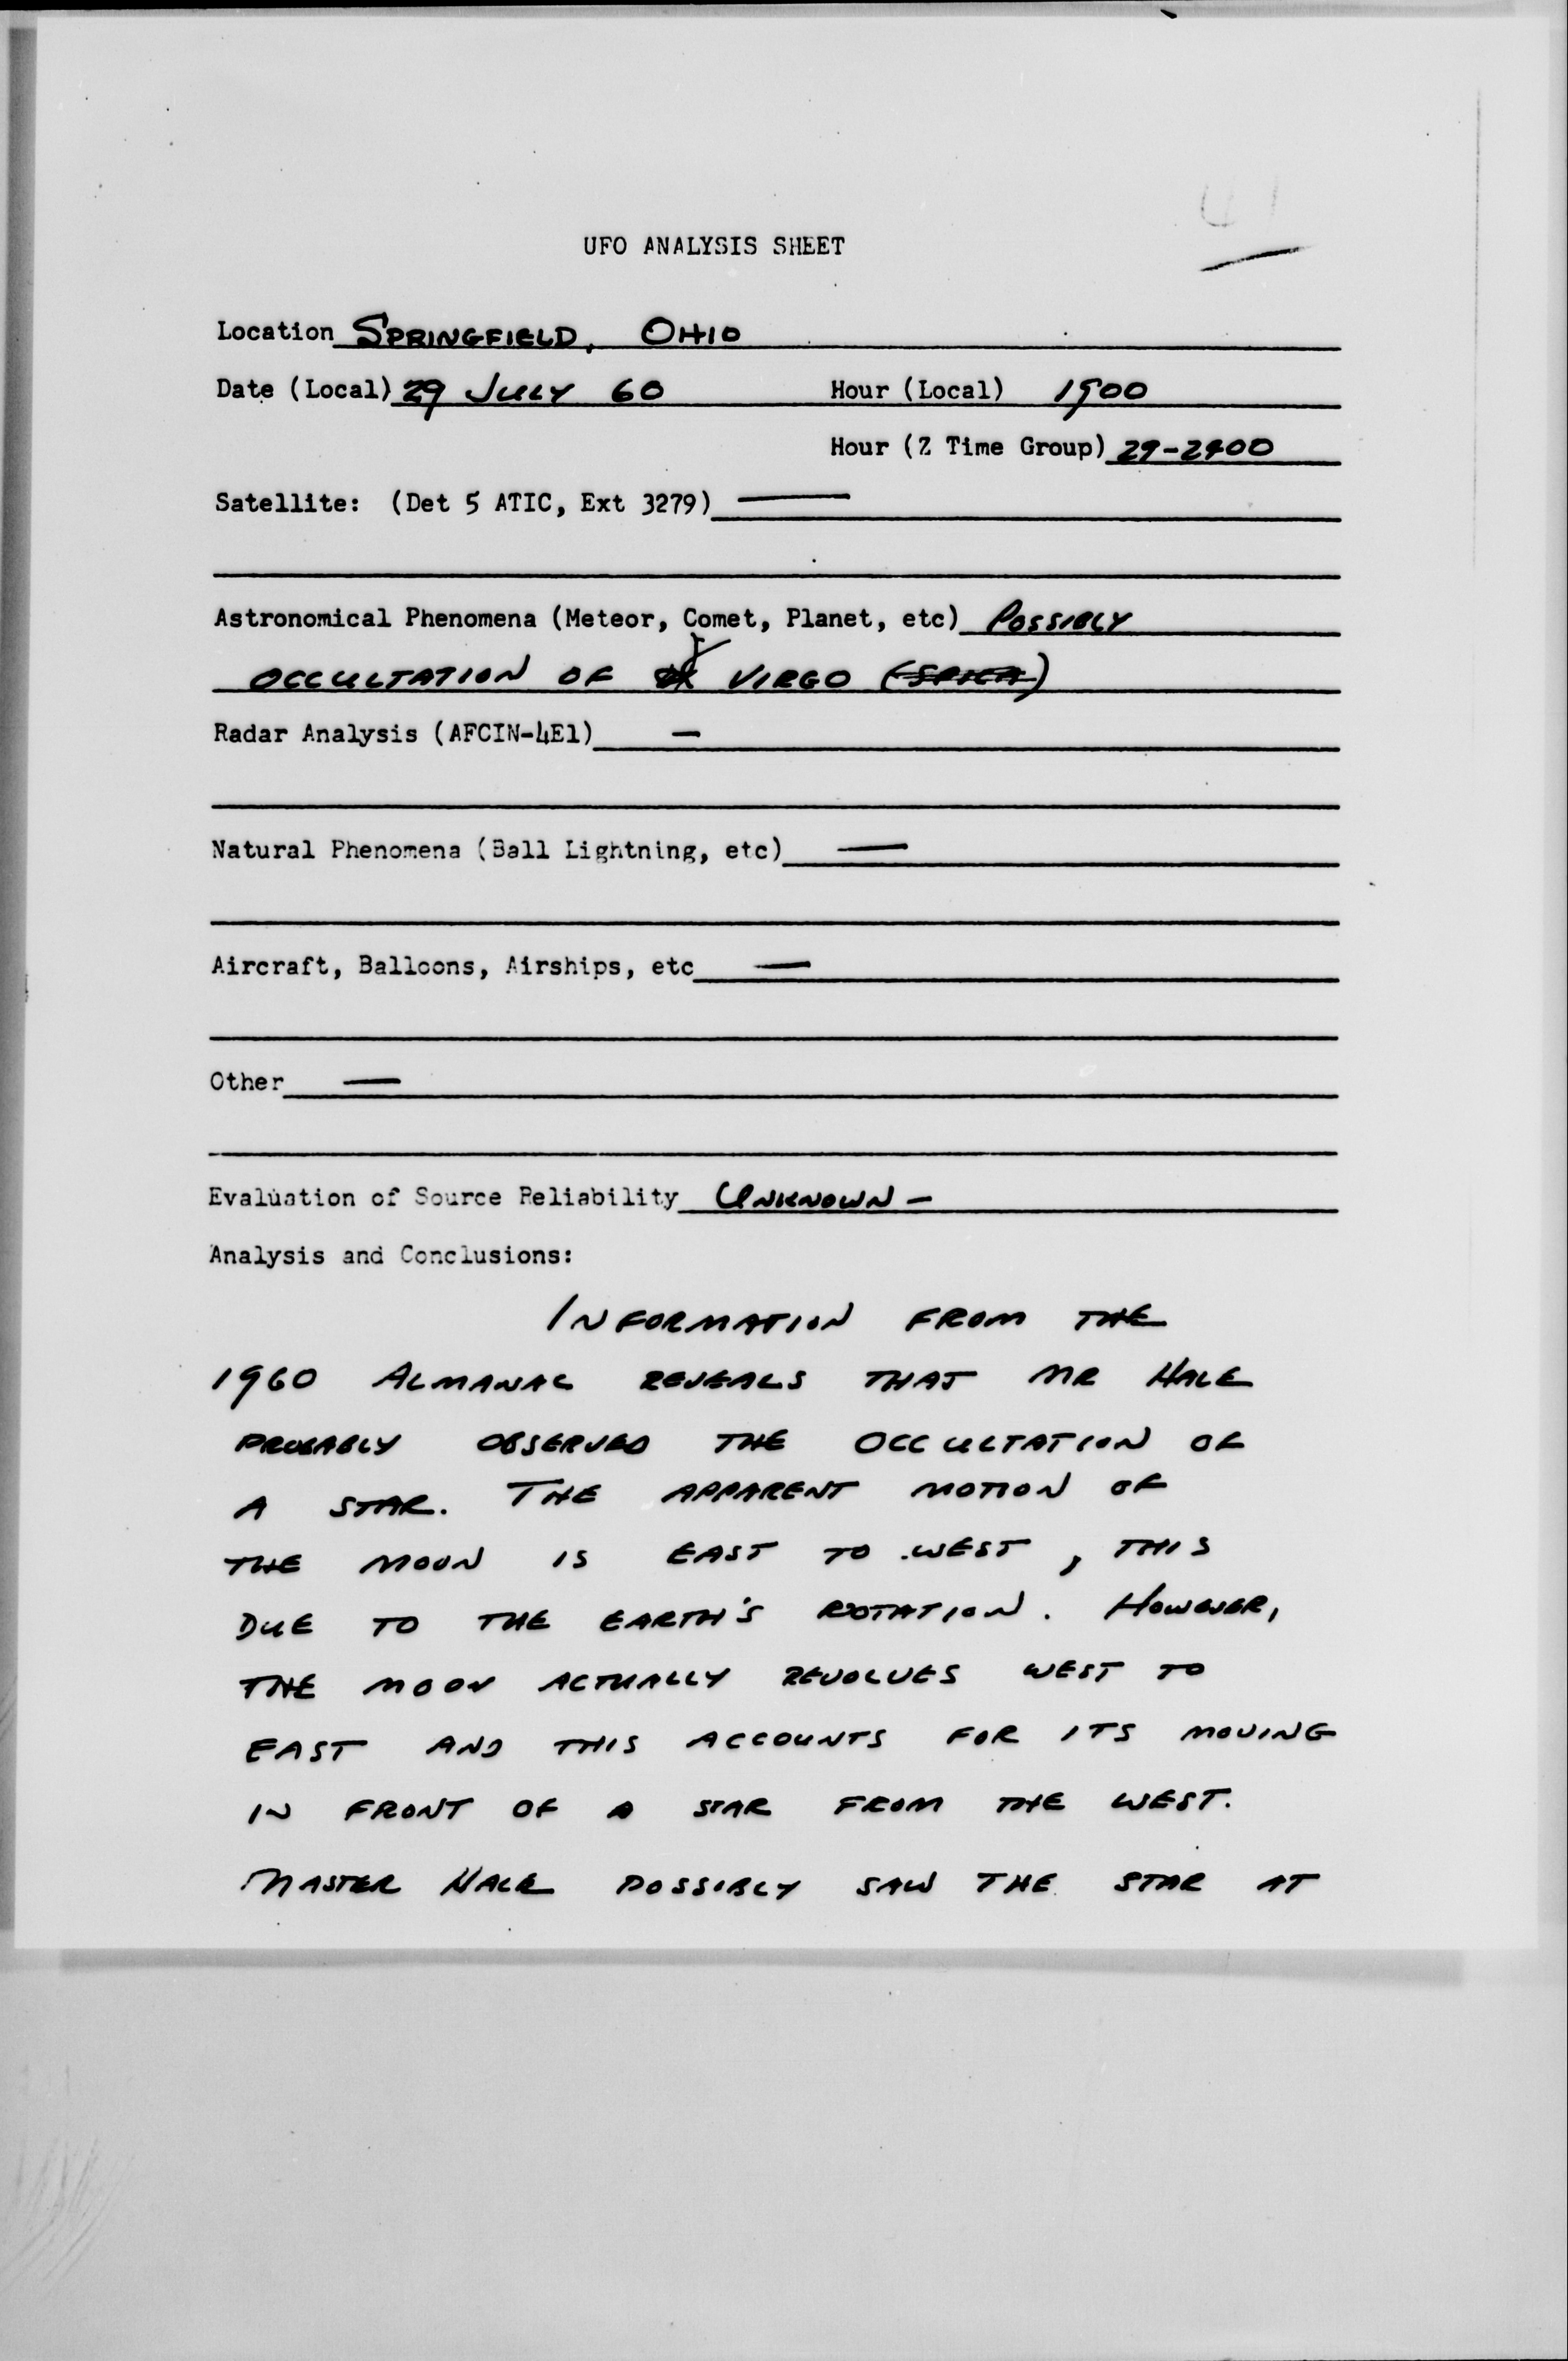 UFO ANALYSIS SHEET
Location SPRINGFIELD, OHIO
Date (Local) 29 JULY 60 Hour (Local) 1900
Hour (Z Time Group) 29-2400
Satellite: (Det 5 ATIC, Ext 3279) —
Astronomical Phenomena (Meteor, Comet, Planet, etc) POSSIBLY
OCCULTATION OF γ VIRGO (SPICA)
Radar Analysis (AFCIN-4E1) —
Natural Phenomena (Ball Lightning, etc) —
Aircraft, Balloons, Airships, etc —
Other —
Evaluation of Source Reliability UNKNOWN —
Analysis and Conclusions:
INFORMATION FROM THE
1960 ALMANAC REVEALS THAT MR HALE
PROBABLY OBSERVED THE OCCULTATION OF
A STAR. THE APPARENT MOTION OF
THE MOON IS EAST TO WEST, THIS
DUE TO THE EARTH'S ROTATION. HOWEVER,
THE MOON ACTUALLY REVOLVES WEST TO
EAST AND THIS ACCOUNTS FOR ITS MOVING
IN FRONT OF A STAR FROM THE WEST.
MASTER HALE POSSIBLY SAW THE STAR AT